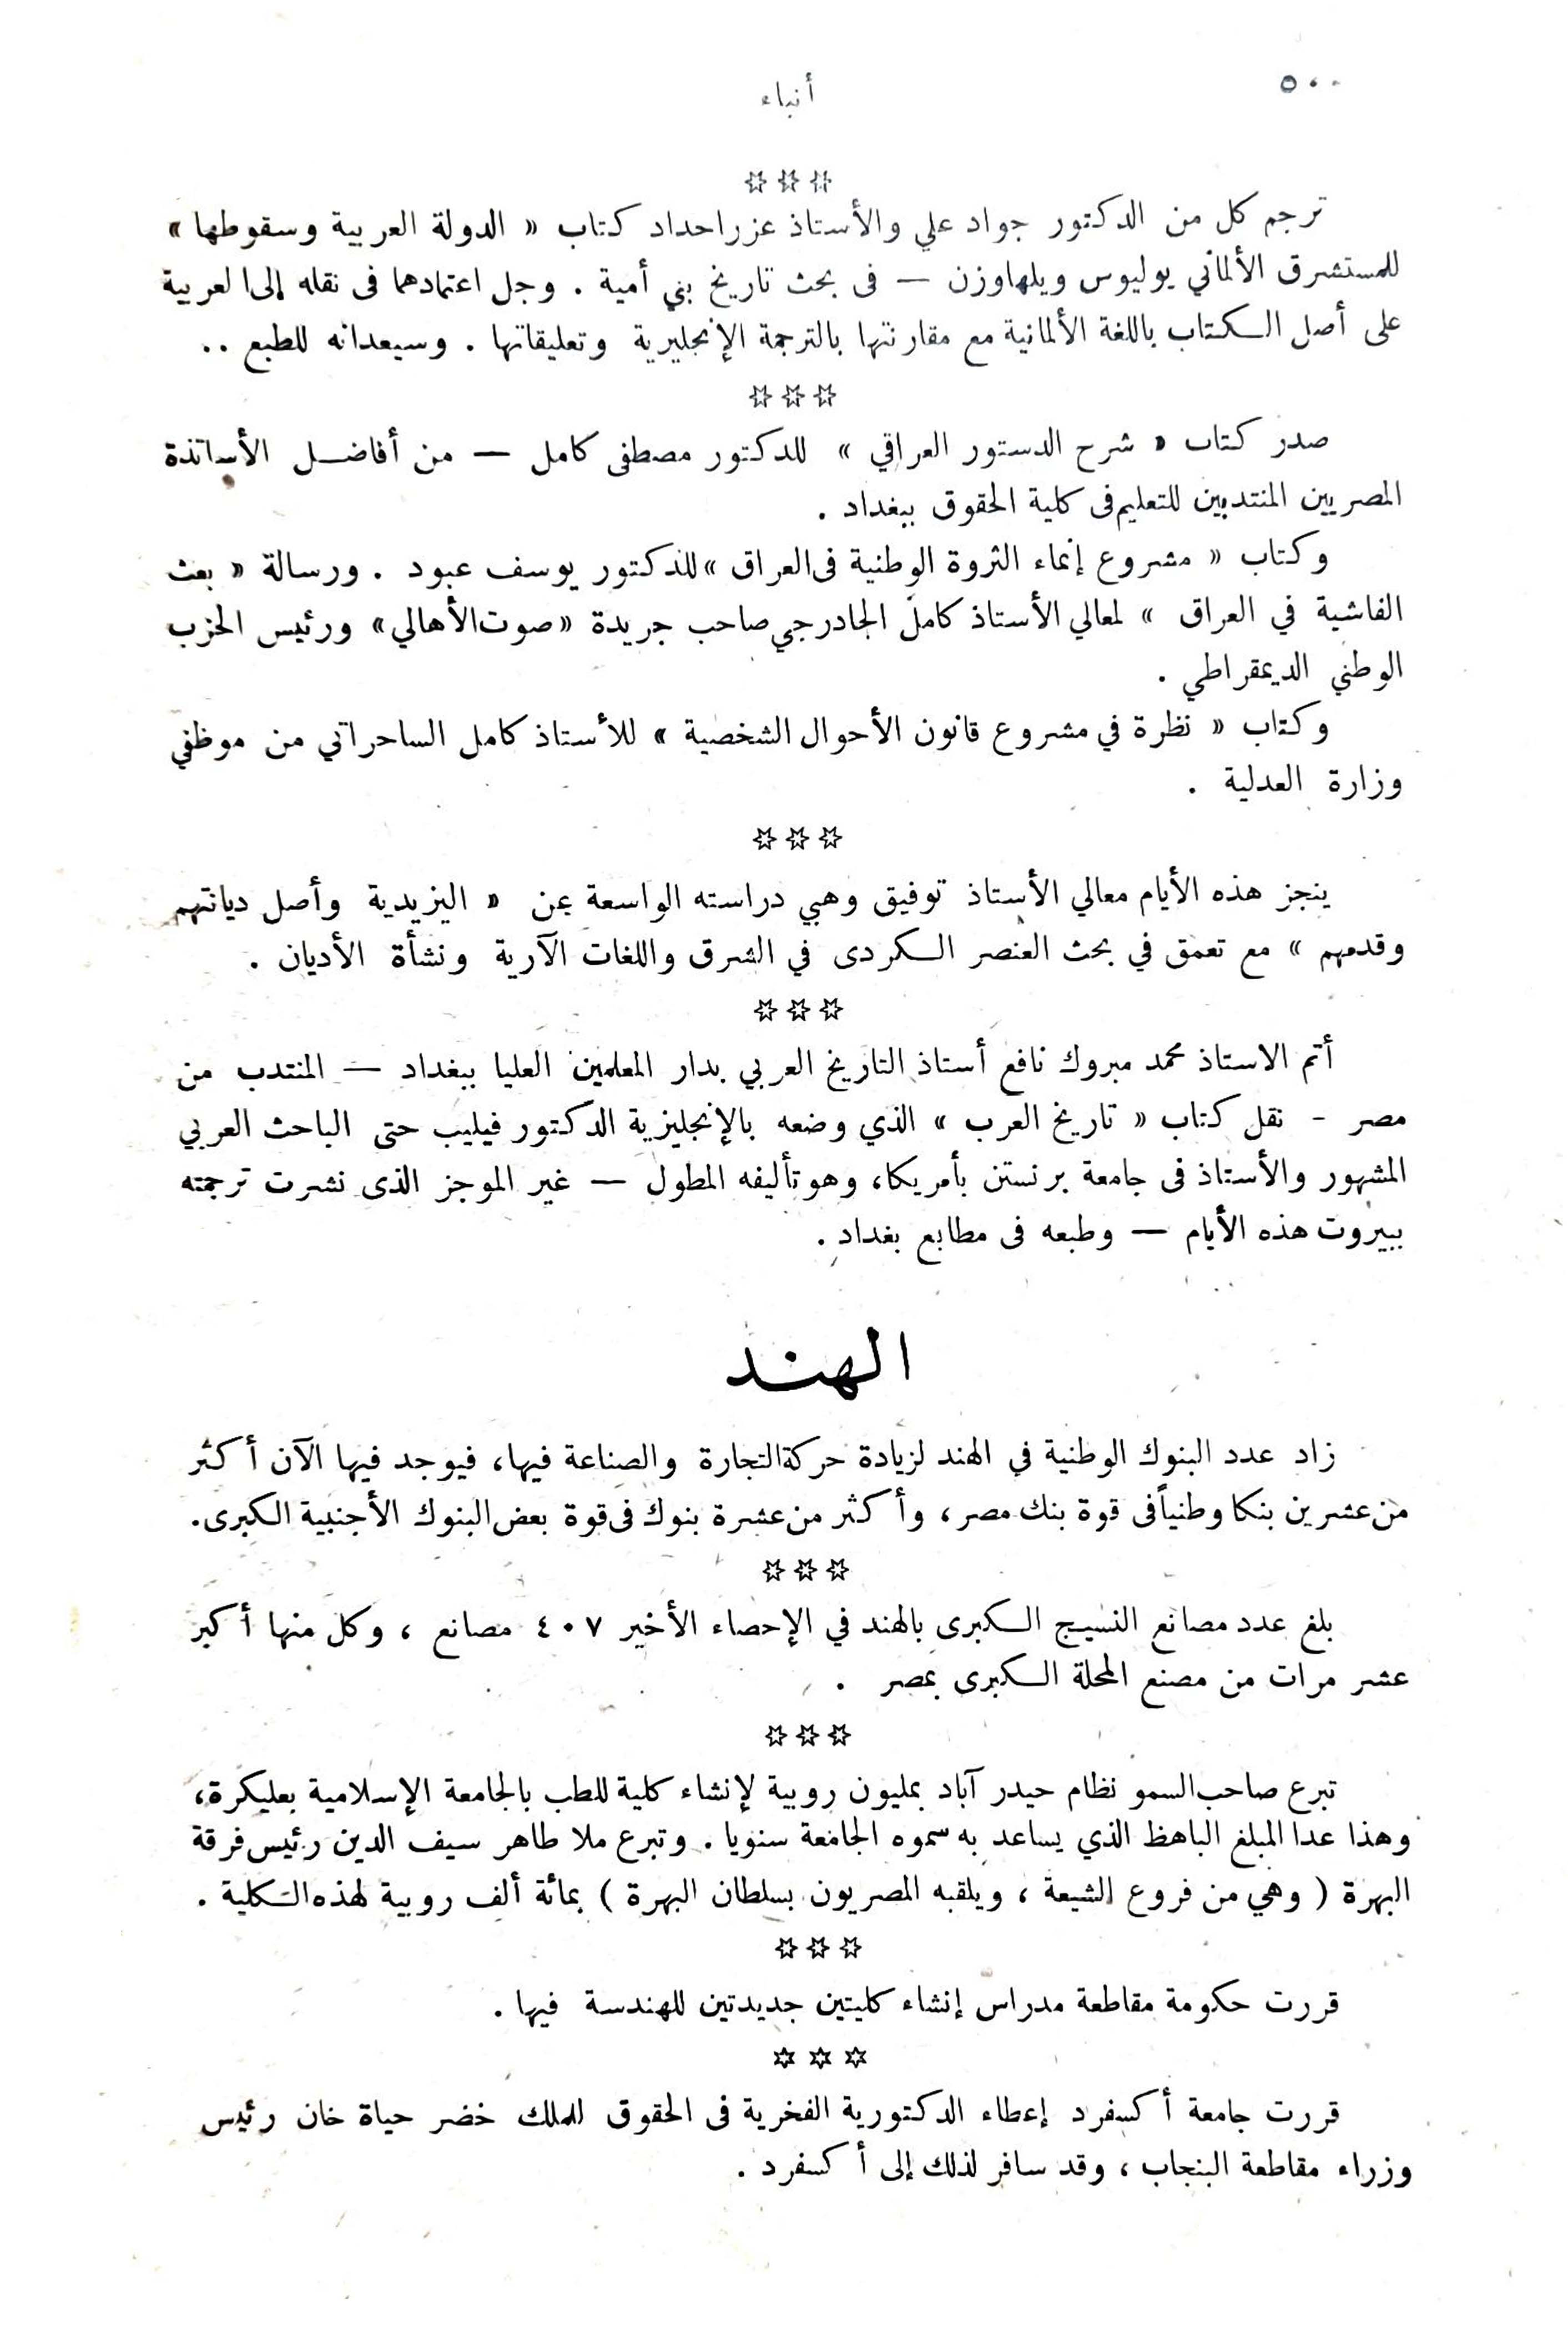 ٥٠٠
أنباء
☆☆☆
ترجم كل من الدكتور جواد علي والأستاذ عزرا حداد كتاب « الدولة العربية وسقوطها »
للمستشرق الألماني يوليوس ويلهاوزن — فى بحث تاريخ بني أمية . وجل اعتمادهما فى نقله إلى العربية
على أصل الكتاب باللغة الألمانية مع مقارنتها بالترجمة الإنجليرية وتعليقاتها . وسيعدانه للطبع ..
☆☆☆
صدر كتاب « شرح الدستور العراقي » للدكتور مصطفى كامل — من أفاضل الأساتذة
المصريين المنتدبين للتعليم فى كلية الحقوق ببغداد .
وكتاب « مشروع إنماء الثروة الوطنية فى العراق » للدكتور يوسف عبود . ورسالة « بعث
الفاشية في العراق » لمعالي الأستاذ كامل الجادرجي صاحب جريدة «صوت الأهالي» ورئيس الحزب
الوطني الديمقراطي .
وكتاب « نظرة في مشروع قانون الأحوال الشخصية » للأستاذ كامل الساحراتي من موظفي
وزارة العدلية .
☆☆☆
ينجز هذه الأيام معالي الأستاذ توفيق وهبي دراسته الواسعة عن « اليزيدية وأصل ديانتهم
وقدمهم » مع تعمق في بحث العنصر الكردى في الشرق واللغات الآرية ونشأة الأديان .
☆☆☆
أتم الاستاذ محمد مبروك نافع أستاذ التاريخ العربي بدار المعلمين العليا ببغداد — المنتدب من
مصر - نقل كتاب « تاريخ العرب » الذي وضعه بالإنجليزية الدكتور فيليب حتى الباحث العربي
المشهور والأستاذ فى جامعة برنستن بأمريكا، وهو تأليفه المطول — غير الموجز الذى نشرت ترجمته
ببيروت هذه الأيام — وطبعه فى مطابع بغداد .
الهند
زاد عدد البنوك الوطنية في الهند لزيادة حركة التجارة والصناعة فيها، فيوجد فيها الآن أكثر
من عشرين بنكا وطنياً فى قوة بنك مصر، وأكثر من عشرة بنوك فى قوة بعض البنوك الأجنبية الكبرى.
☆☆☆
بلغ عدد مصانع النسيج الكبرى بالهند في الإحصاء الأخير ٤٠٧ مصانع ، وكل منها أكبر
عشر مرات من مصنع المحلة الكبرى بمصر .
☆☆☆
تبرع صاحب السمو نظام حيدر آباد بمليون روبية لإنشاء كلية للطب بالجامعة الإسلامية بعليكرة،
وهذا عدا المبلغ الباهظ الذي يساعد به سموه الجامعة سنويا . وتبرع ملا طاهر سيف الدين رئيس فرقة
البهرة ( وهي من فروع الشيعة ، ويلقبه المصريون بسلطان البهرة ) بمائة ألف روبية لهذه الكلية .
☆☆☆
قررت حكومة مقاطعة مدراس إنشاء كليتين جديدتين للهندسة فيها .
☆☆☆
قررت جامعة أكسفرد إعطاء الدكتورية الفخرية فى الحقوق للملك خضر حياة خان رئيس
وزراء مقاطعة البنجاب ، وقد سافر لذلك إلى أكسفرد .